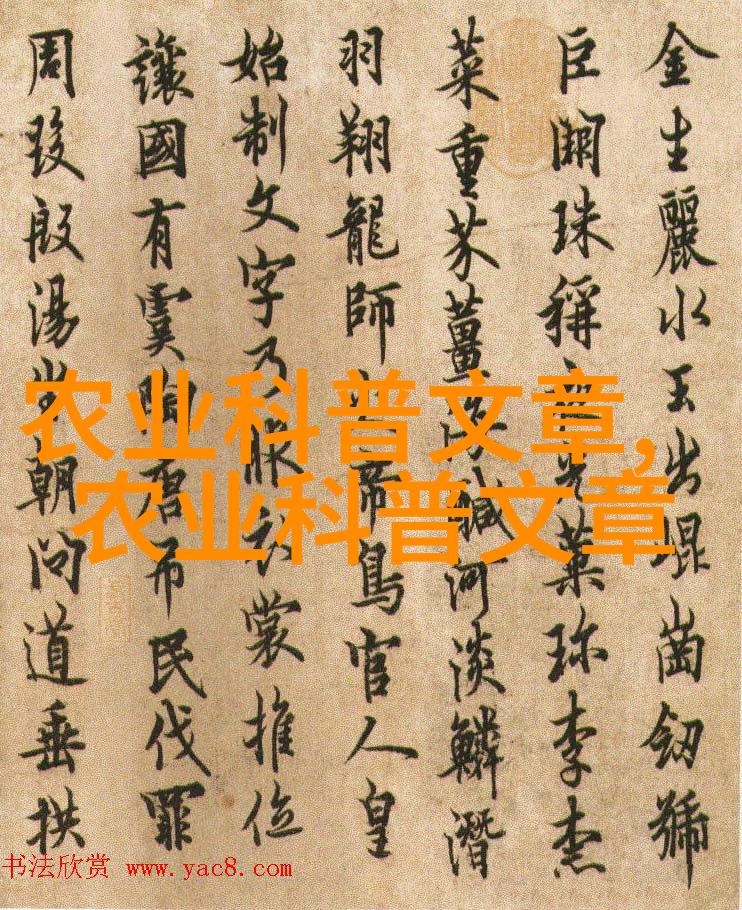 金生麗水玉出崑崗劒號
巨闕珠稱夜光菓珎李柰
菜重芥薑海鹹河淡鱗潛
羽翔龍師火帝鳥官人皇
始制文字乃服衣裳推位
讓國有虞陶唐弔民伐罪
周發殷湯坐朝問道垂拱
农业科普文章,
农业科普文章
书法欣赏 www.yac8.com